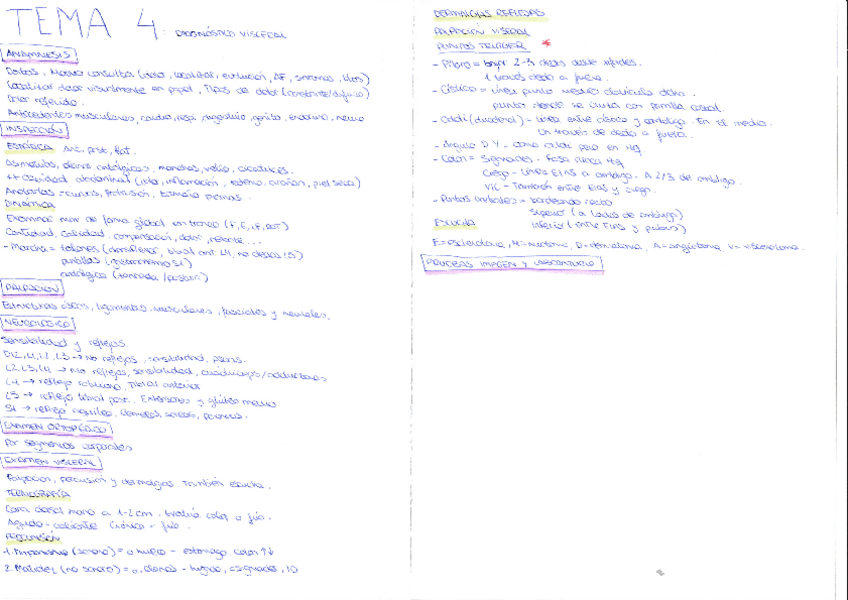 TEMA 4. DIAGNÓSTICO VISCERAL
ANAMNESIS
Datos, Motivo consulta (dolor, localizar, evolución, AF, síntomas, )
Localizar dolor visualmente en papel, Tipos de dolor (constante/difuso)
Dolor referido.
Antecedentes musculares, cardio, resp, digestivo, genito, endocrino, neuro
INSPECCIÓN
ESTÁTICA Ant, post, lat.
Asimetrías, dolores antálgicos, manchas, vello, cicatrices.
++ cavidad abdominal (, inflamación, edema, , piel seca)
Anotarlas = curvas, , piernas.
DINÁMICA
Examinar mov de forma global en tronco (F, E, LF, ROT)
Cantidad, calidad, compensación, dolor, rebote...
- Marcha = talones (dorsiflexor, tibial ant L4, no descarta L5)
puntillas (gastrocnemio S1)
PALPACIÓN
Estructuras óseas, ligamentos, musculares, fasciales y neurales.
NEUROLÓGICO
Sensibilidad y reflejos.
D12, L1, L2, L3 → No reflejos, sensibilidad, psoas.
L2, L3, L4 → No reflejos, sensibilidad, cuádriceps/adductores
L4 → reflejo rotuliano, Tibial anterior
L5 → reflejo tibial post. Extensores y glúteo medio
S1 → reflejo aquíleo, gemelos, soleo, peroneos.
EXAMEN ORTOPÉDICO
Por segmentos corporales
EXAMEN VISCERAL
Palpación, percusión y dermalgias. También escucha.
TERMOGRAFÍA
Cara dorsal mano a 1-2 cm. Evalúo calor o frío.
Agudo - caliente Crónico - frío.
PERCUSIÓN
1. Timpanismo (sonoro) = o hueco - estómago, colon ↑↓
2. Matidez (no sonoro) = o. densos - hígado, , ID
DERMALGIAS REFLEJAS
PALPACIÓN VISCERAL
PUNTOS TRIGGER *
- Píloro = bajar 2-3 dedos desde xifoides.
1 través dedo a fuera.
- Cístico = Línea punto medio clavícula dcha.
punto donde se junta con parrilla costal.
- Oddi (duodenal) - Línea entre cístico y ombligo. En el medio.
Un través de dedo a fuera.
- Ángulo D-Y - como oddi pero en izq
- Colon = Sigmoides - Fosa ilíaca izq
Ciego - Línea EIAS a ombligo. A 2/3 de ombligo.
VIC - También entre EIAS y ciego.
- Puntos - bordeando recto
Superior (a lados de ombligo)
Inferior (entre EIAS y pubis)
ESCUCHA
E = esclerotoma, M = miotoma, D = dermatoma, A = angiotoma, V = viscerotoma.
PRUEBAS IMAGEN Y LABORATORIO